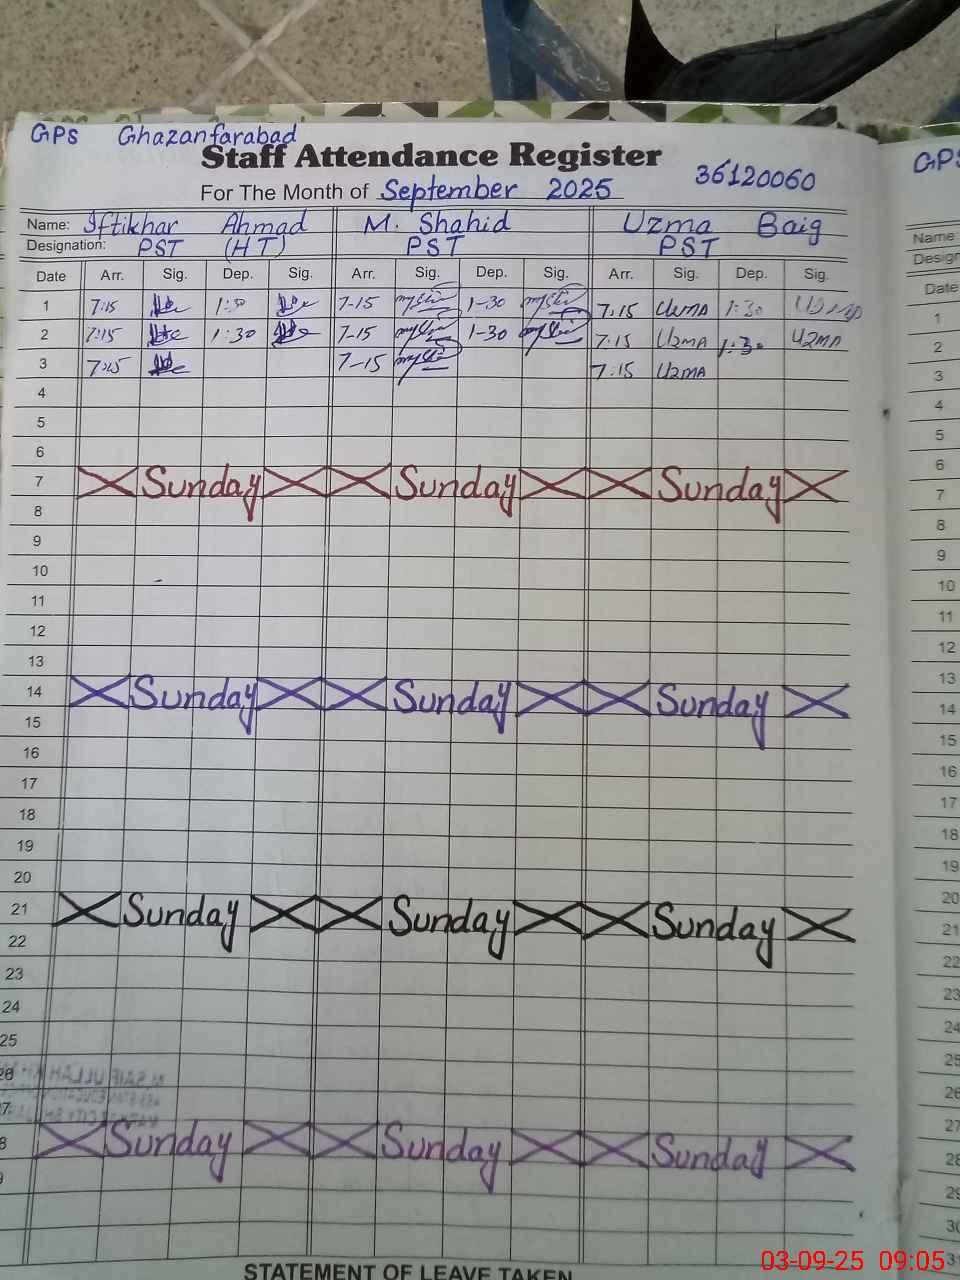 GPS Ghazanfarabad
Staff Attendance Register
For The Month of September 2025 36120060
Name: Iftikhar Ahmad M. Shahid Uzma Baig
Designation: PST (HT) PST PST
Date Arr. Sig. Dep. Sig. Arr. Sig. Dep. Sig. Arr. Sig. Dep. Sig.
1 7:15 1:30 7-15 1-30 7:15 UZMA 1:30 UZMA
2 7:15 1:30 7-15 1-30 7:15 UZMA 1:30 UZMA
3 7:15 7-15 7:15 UZMA
4
5
6
7 Sunday Sunday Sunday
8
9
10
11
12
13
14 Sunday Sunday Sunday
15
16
17
18
19
20
21 Sunday Sunday Sunday
22
23
24
25
26
27
28 Sunday Sunday Sunday
STATEMENT OF LEAVE TAKEN
GPS
Name
Design
Date
1
2
3
4
5
6
7
8
9
10
11
12
13
14
15
16
17
18
19
20
21
22
23
24
25
26
27
28
29
30
31
03-09-25 09:05